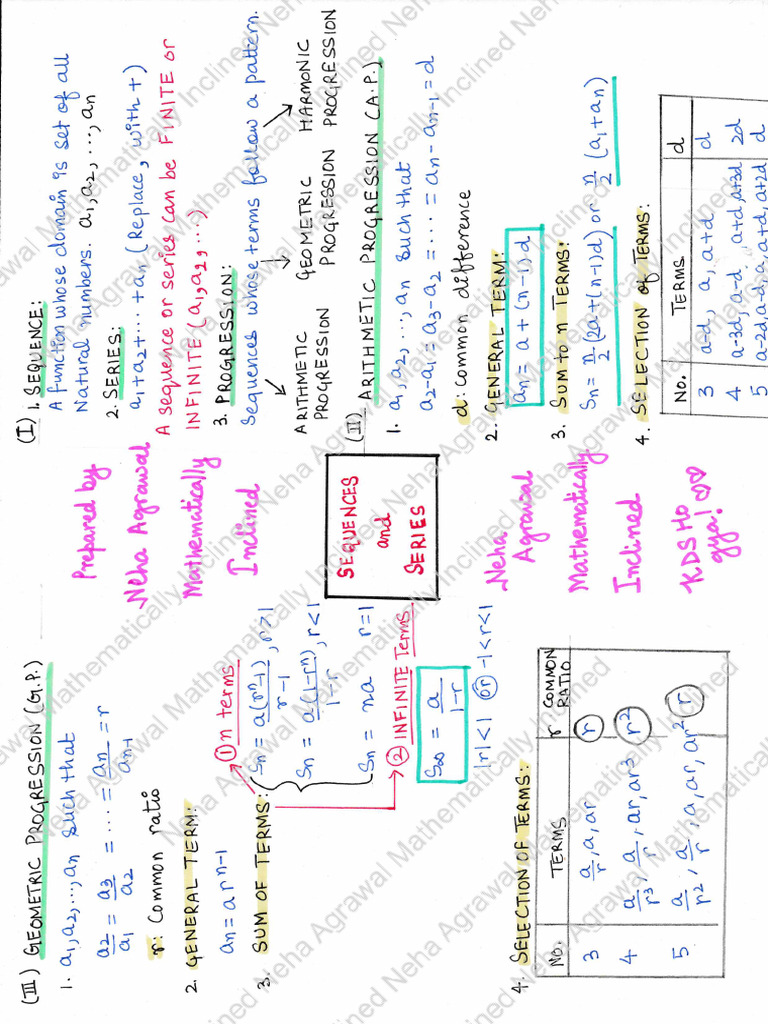 (I) 1. SEQUENCE:
A function whose domain is set of all
Natural numbers. a₁, a₂, ..., aₙ
2. SERIES:
a₁+a₂+...+aₙ (Replace , with +)
A sequence or series can be FINITE or
INFINITE (a₁, a₂, ...)
3. PROGRESSION:
Sequences whose terms follow a pattern.
ARITHMETIC PROGRESSION
GEOMETRIC PROGRESSION
HARMONIC PROGRESSION
(II) ARITHMETIC PROGRESSION (A.P.)
1. a₁, a₂, ..., aₙ such that
a₂-a₁ = a₃-a₂ = ... = aₙ-aₙ₋₁ = d
d: Common difference
2. GENERAL TERM:
aₙ = a + (n-1) d
3. SUM to n TERMS:
Sₙ = n/2 (2a+(n-1)d) or n/2 (a₁+aₙ)
4. SELECTION of TERMS:
No. TERMS d
3 a-d, a, a+d d
4 a-3d, a-d, a+d, a+3d 2d
5 a-2d, a-d, a, a+d, a+2d d
Prepared by
Neha Agrawal
Mathematically
Inclined
SEQUENCES
and
SERIES
Neha
Agrawal
Mathematically
Inclined
KDS HO
gya!
(III) GEOMETRIC PROGRESSION (G.P.)
1. a₁, a₂, ..., aₙ such that
a₂/a₁ = a₃/a₂ = ... = aₙ/aₙ₋₁ = r
r: Common ratio
2. GENERAL TERM:
aₙ = a rⁿ⁻¹
3. SUM OF TERMS:
① n terms
Sₙ = a(rⁿ-1)/r-1, r>1
Sₙ = a(1-rⁿ)/1-r, r<1
Sₙ = na r=1
② INFINITE Terms
S∞ = a/1-r
|r|<1 OR -1<r<1
4. SELECTION OF TERMS:
No. TERMS r COMMON RATIO
3 a/r, a, ar r
4 a/r³, a/r, ar, ar³ r²
5 a/r², a/r, a, ar, ar² r
Neha Agrawal Mathematically Inclined